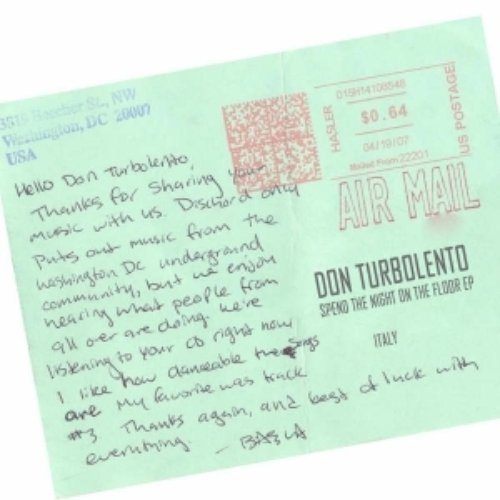 3819 Beecher St., NW
Washington, DC 20007
USA
Hello Don Turbolento,
Thanks for sharing your
music with us. Dischord only
puts out music from the
Washington DC underground
community, but we enjoy
hearing what people from
all over are doing. We're
listening to your CD right now
I like how danceable the songs
are My favorite was track
#3 Thanks again, and best of luck with
everything.
HASLER
015H14108548
$0.64
04/19/07
Mailed From 22201
US POSTAGE
AIR MAIL
DON TURBOLENTO
SPEND THE NIGHT ON THE FLOOR EP
ITALY